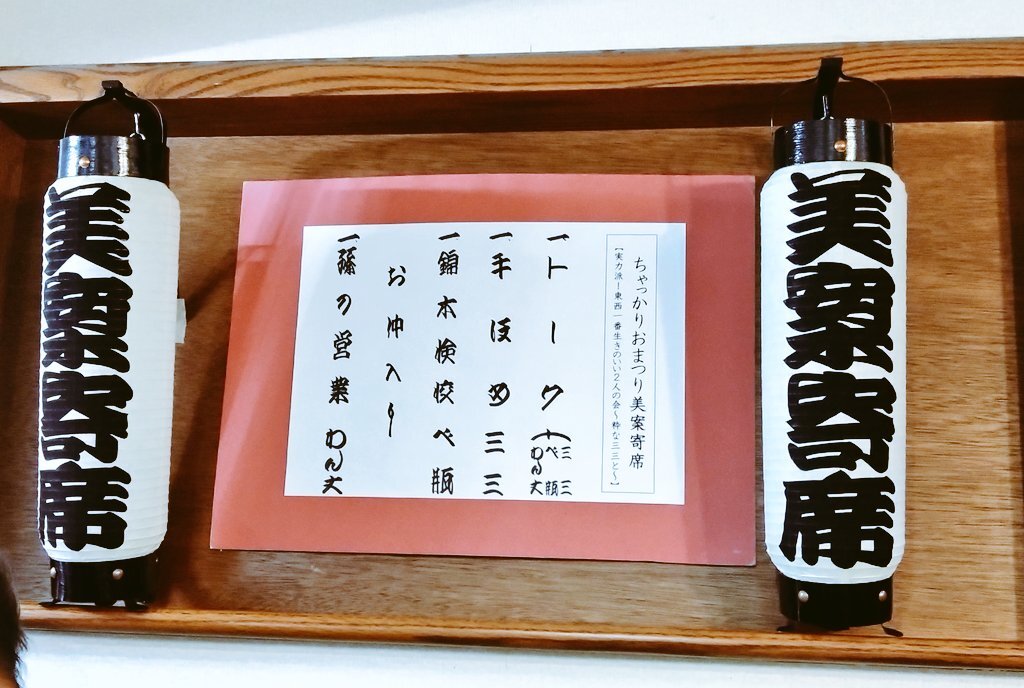 美案寄席
ちゃっかりおまつり美案寄席
【実力派!東西一番生きのいい2人の会~粋な三三と~】
一トーク(三三 べ瓶 わん丈)
一牛ほめ 三三
一錦木検校 べ瓶
お仲入り
一孫の営業 わん丈
美案寄席